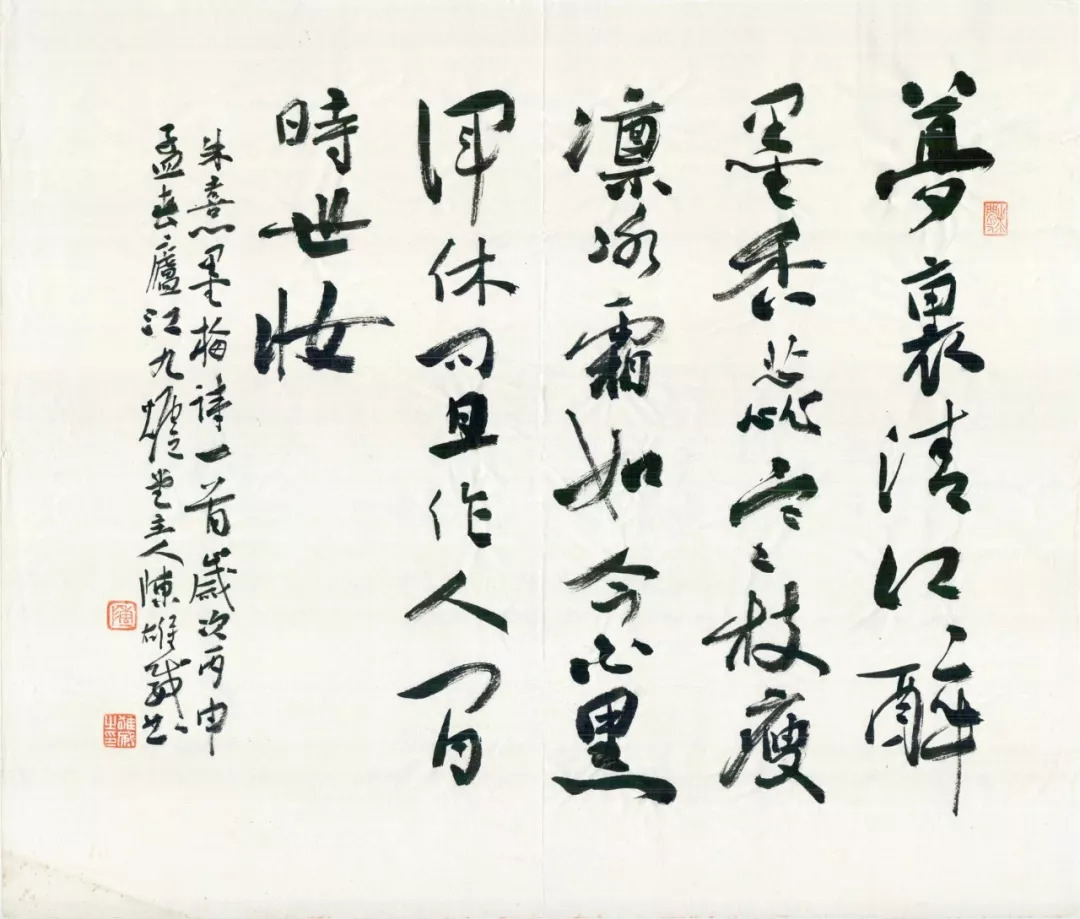 夢裏清江醉
墨香蕊寒枝瘦
凛冰霜如今白黑
渾休問且作人間
時世妝
朱熹墨梅詩一首歲次丙申
孟春廬江九堂主人陳雄威書
陳
雄威之印